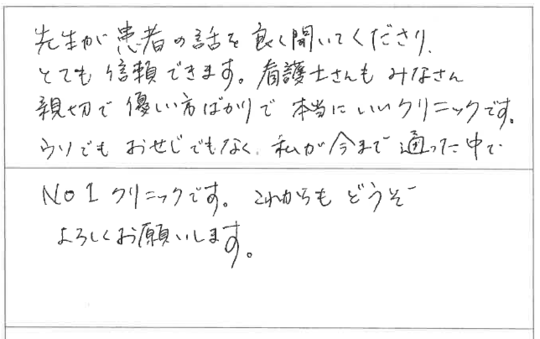 先生が患者の話を良く聞いてくださり、
とても信頼できます。看護士さんもみなさん
親切で優しい方ばかりで本当にいいクリニックです。
ウソでもおせじでもなく、私が今まで通った中で
NO1クリニックです。これからもどうぞ
よろしくお願いします。